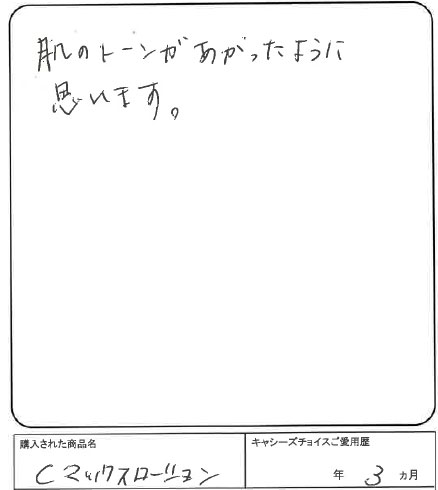 肌のトーンがあがったように
思います。
購入された商品名
Cマックスローション
キャシーズチョイスご愛用歴
年 3 ヵ月